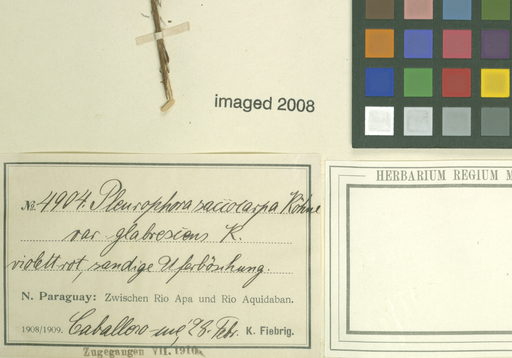 imaged 2008
№ 4904. Pleurophora saccocarpa Köhne
var. glabrescens K.
violettrot, sandige Uferböschung.
N. Paraguay: Zwischen Rio Apa und Rio Aquidaban.
1908/1909. Caballero 28. Febr. K. Fiebrig.
Zugegangen VII. 1910.
HERBARIUM REGIUM M